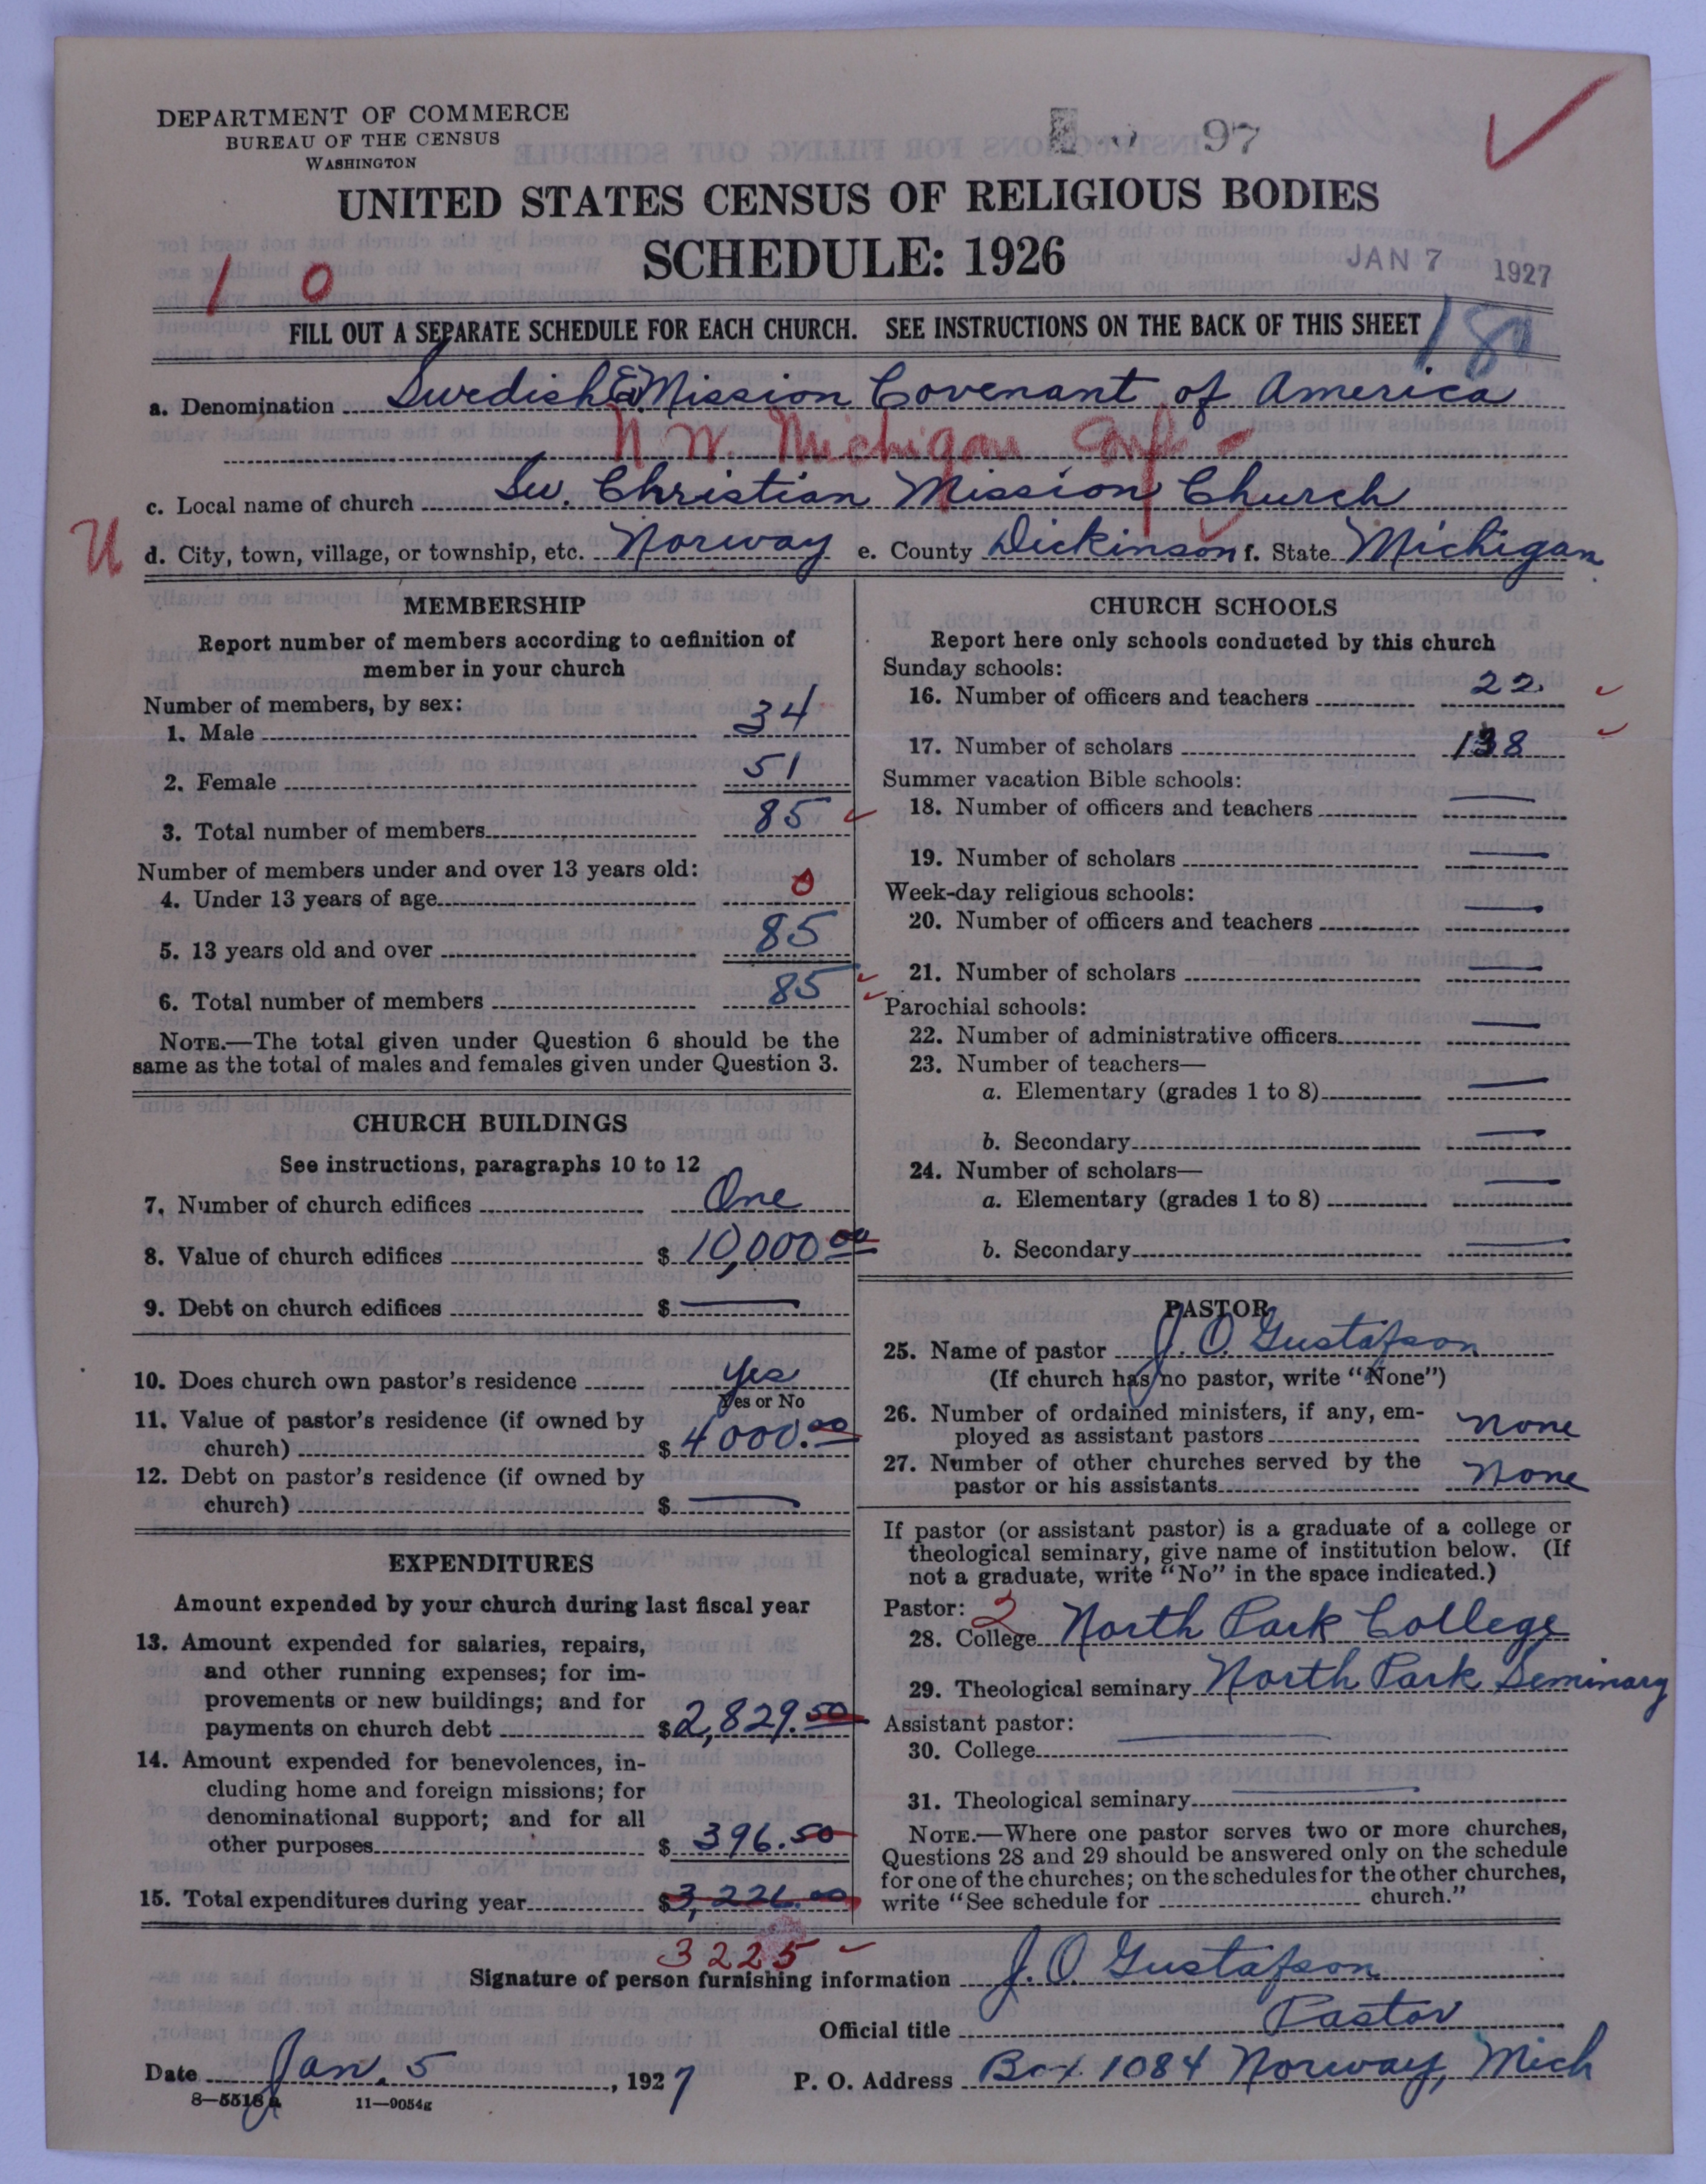 DEPARTMENT OF COMMERCE
BUREAU OF THE CENSUS
WASHINGTON
97
UNITED STATES CENSUS OF RELIGIOUS BODIES
SCHEDULE: 1926
JAN 7 1927
1 0
FILL OUT A SEPARATE SCHEDULE FOR EACH CHURCH. SEE INSTRUCTIONS ON THE BACK OF THIS SHEET
180
a. Denomination Swedish Ev. Mission Covenant of America
N. W. Michigan Conf -
c. Local name of church Sw. Christian Mission Church
U
d. City, town, village, or township, etc. Norway e. County Dickinson f. State Michigan
MEMBERSHIP
Report number of members according to definition of
member in your church
Number of members, by sex:
1. Male 34
2. Female 51
3. Total number of members 85
Number of members under and over 13 years old:
4. Under 13 years of age 0
5. 13 years old and over 85
6. Total number of members 85
NOTE.—The total given under Question 6 should be the
same as the total of males and females given under Question 3.
CHURCH BUILDINGS
See instructions, paragraphs 10 to 12
7. Number of church edifices One
8. Value of church edifices $ 10,000 00
9. Debt on church edifices $ —
10. Does church own pastor's residence Yes
Yes or No
11. Value of pastor's residence (if owned by
church) $ 4000.00
12. Debt on pastor's residence (if owned by
church) $ —
EXPENDITURES
Amount expended by your church during last fiscal year
13. Amount expended for salaries, repairs,
and other running expenses; for im-
provements or new buildings; and for
payments on church debt $ 2,829.50
14. Amount expended for benevolences, in-
cluding home and foreign missions; for
denominational support; and for all
other purposes $ 396.50
15. Total expenditures during year $ 3,226.00
3225
CHURCH SCHOOLS
Report here only schools conducted by this church
Sunday schools:
16. Number of officers and teachers 22
17. Number of scholars 138
Summer vacation Bible schools:
18. Number of officers and teachers —
19. Number of scholars —
Week-day religious schools:
20. Number of officers and teachers —
21. Number of scholars —
Parochial schools:
22. Number of administrative officers —
23. Number of teachers—
a. Elementary (grades 1 to 8) —
b. Secondary —
24. Number of scholars—
a. Elementary (grades 1 to 8) —
b. Secondary —
PASTOR
25. Name of pastor J. O. Gustafson
(If church has no pastor, write "None")
26. Number of ordained ministers, if any, em-
ployed as assistant pastors none
27. Number of other churches served by the
pastor or his assistants none
If pastor (or assistant pastor) is a graduate of a college or
theological seminary, give name of institution below. (If
not a graduate, write "No" in the space indicated.)
Pastor: 2
28. College North Park College
29. Theological seminary North Park Seminary
Assistant pastor:
30. College —
31. Theological seminary —
NOTE.—Where one pastor serves two or more churches,
Questions 28 and 29 should be answered only on the schedule
for one of the churches; on the schedules for the other churches,
write "See schedule for church."
Signature of person furnishing information J. O. Gustafson
Official title Pastor
Date Jan. 5, 1927 P. O. Address Box 1084 Norway, Mich
8—5518 a 11—9054g